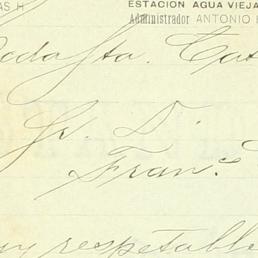 AS H
ESTACIÓN AGUA VIEJA
Administrador ANTONIO
Sta. Cat
Sr. D.
Franco
uy respetable